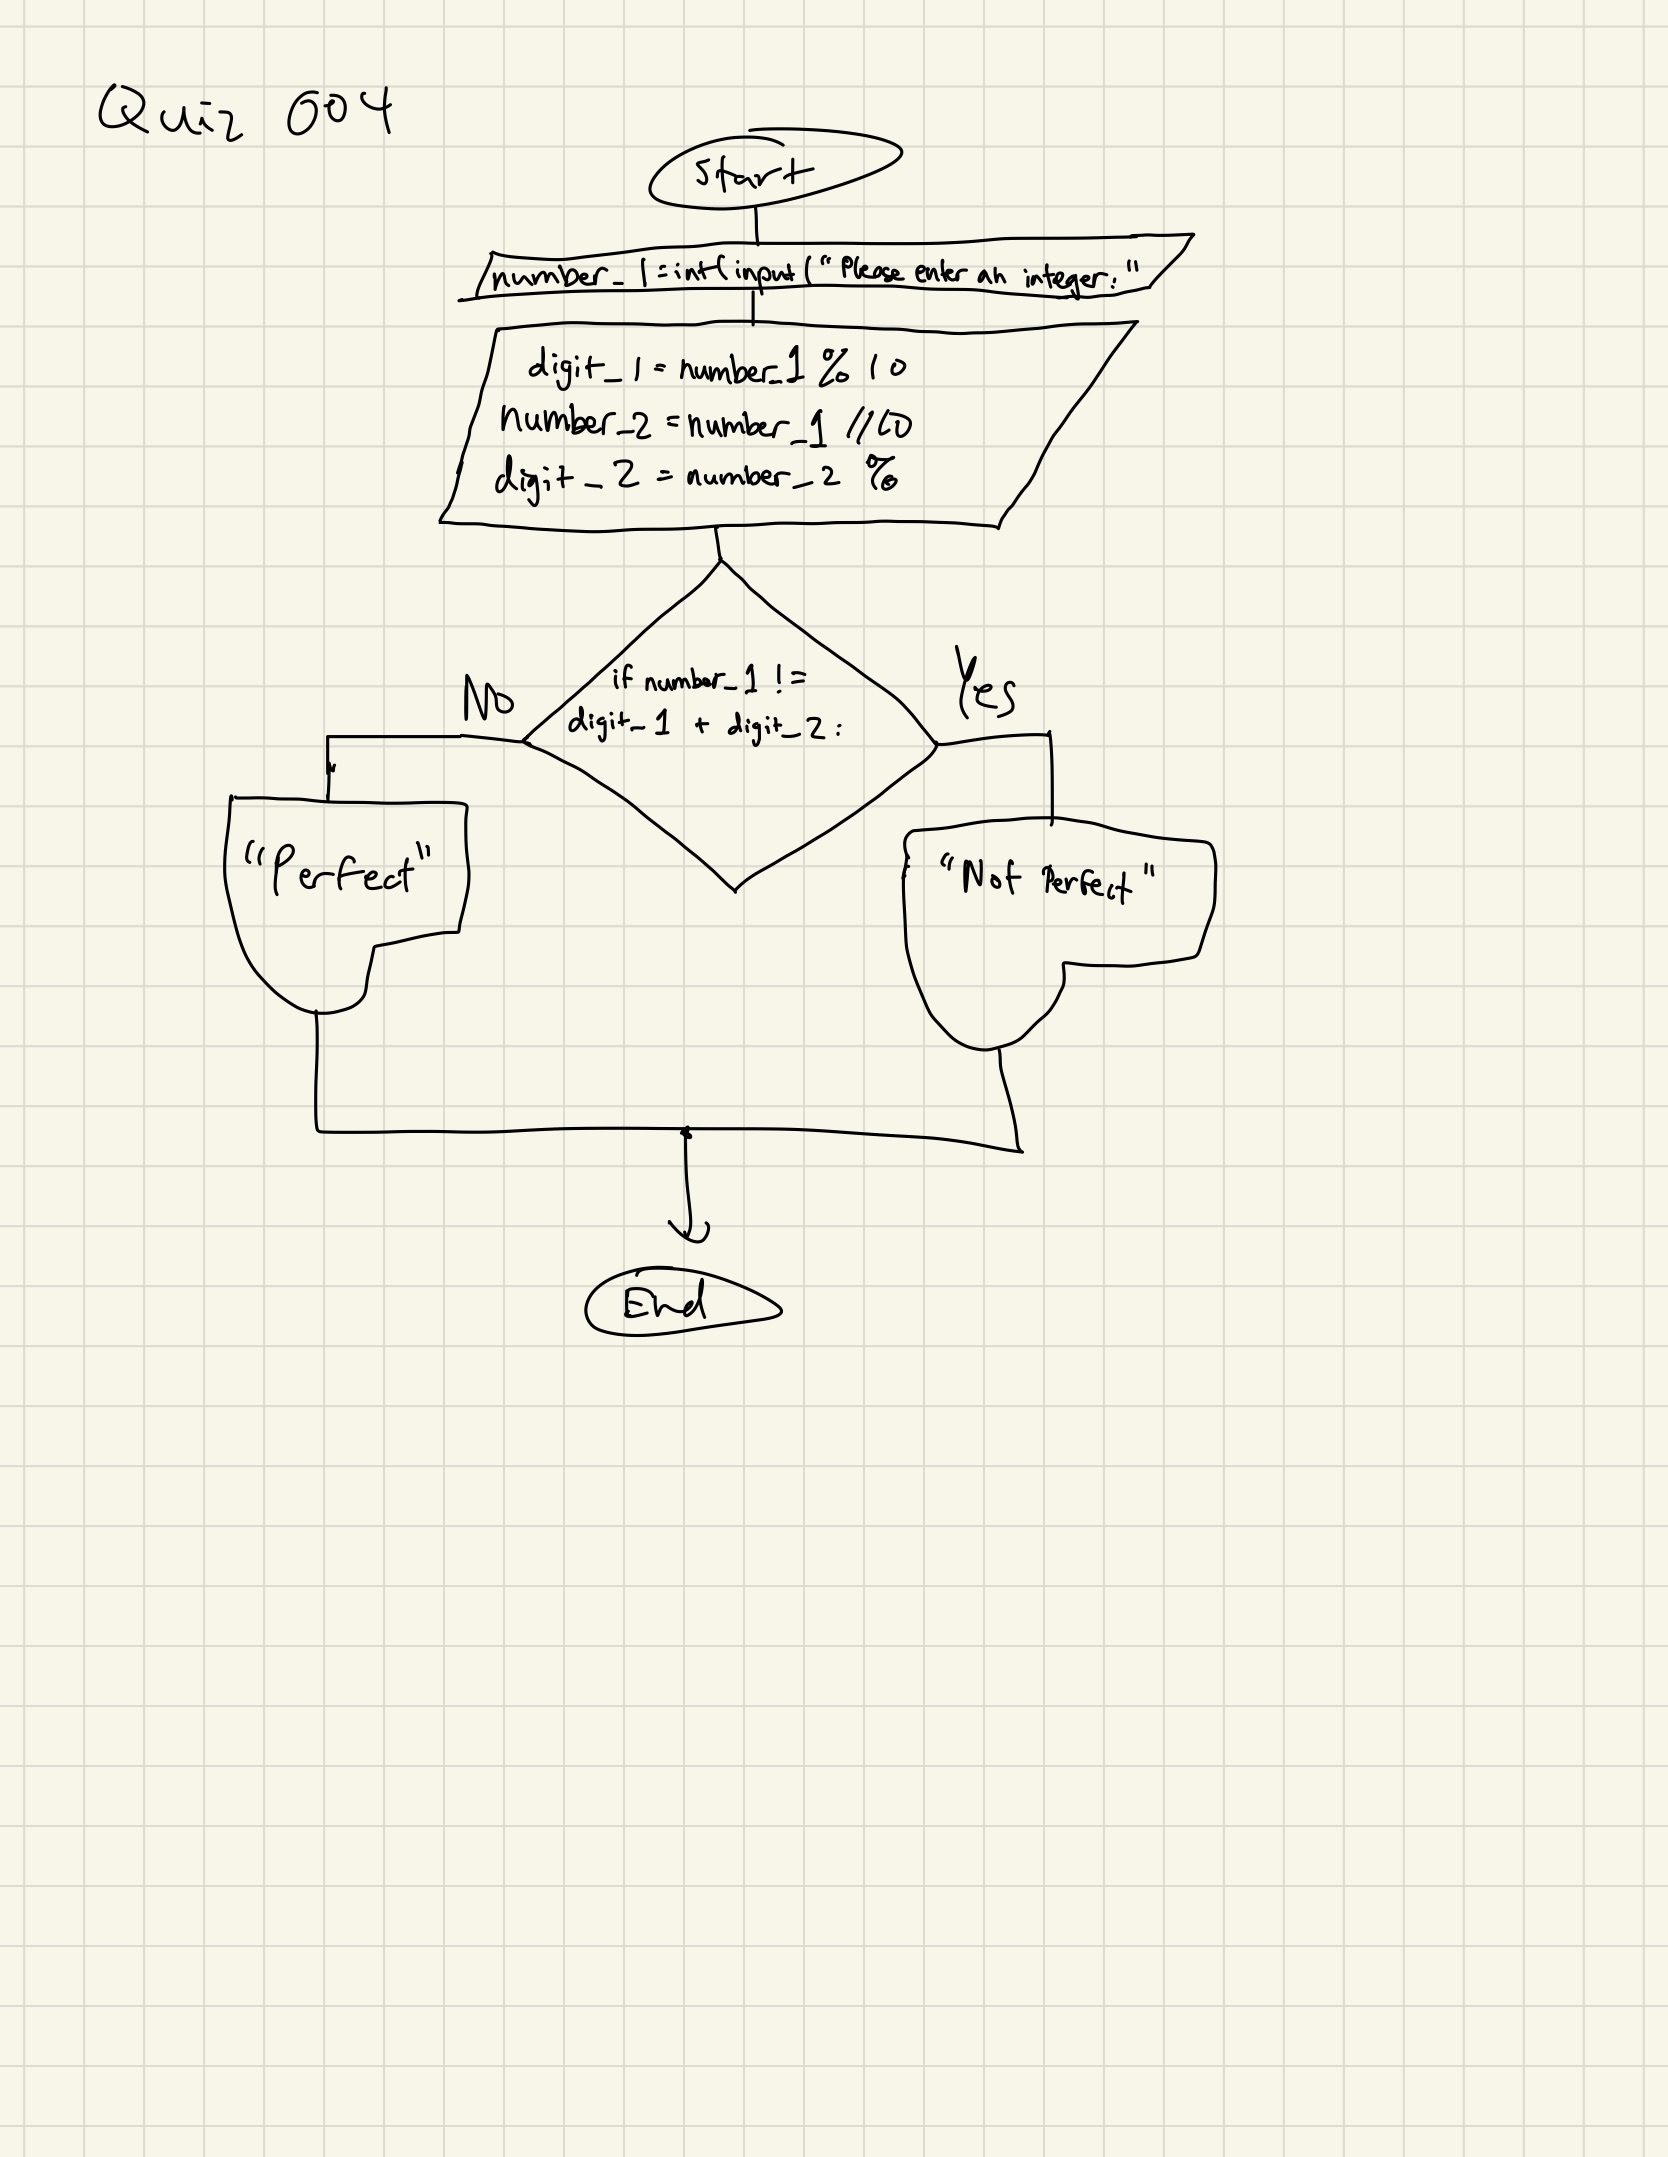 Quiz 004
Start
number_1 = int(input("Please enter an integer:"
digit_1 = number_1 % 10
number_2 = number_1 //10
digit_2 = number_2 %
if number_1 !=
digit_1 + digit_2:
No
Yes
"Perfect"
"Not Perfect"
End